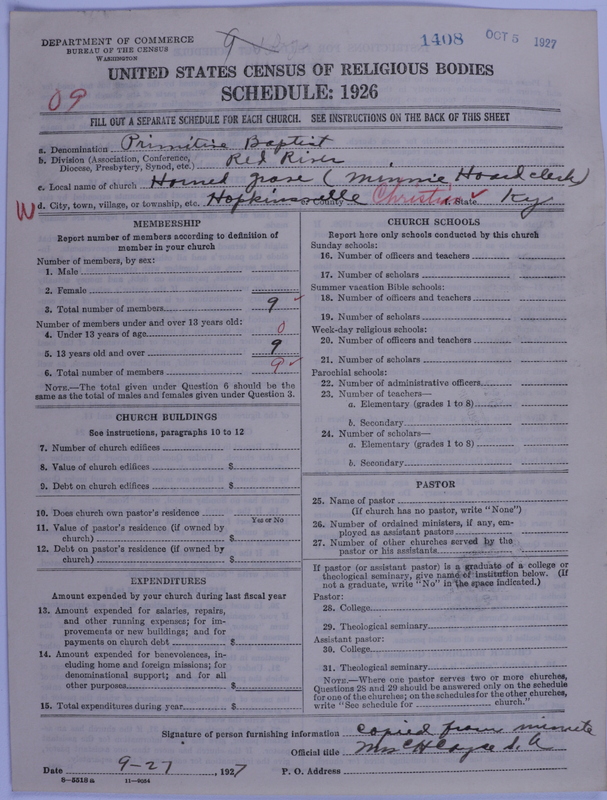 DEPARTMENT OF COMMERCE
BUREAU OF THE CENSUS
WASHINGTON
9
1408 OCT 5 1927
UNITED STATES CENSUS OF RELIGIOUS BODIES
SCHEDULE: 1926
09
FILL OUT A SEPARATE SCHEDULE FOR EACH CHURCH. SEE INSTRUCTIONS ON THE BACK OF THIS SHEET
a. Denomination Primitive Baptist
b. Division (Association, Conference, Diocese, Presbytery, Synod, etc.) Red River
c. Local name of church (Minnie clerk)
W d. City, town, village, or township, etc. Hopkinsville County Christian State Ky
MEMBERSHIP
Report number of members according to definition of
member in your church
Number of members, by sex:
1. Male
2. Female
3. Total number of members 9 ✓
Number of members under and over 13 years old:
4. Under 13 years of age 0
5. 13 years old and over 9
6. Total number of members 9 ✓
NOTE.—The total given under Question 6 should be the
same as the total of males and females given under Question 3.
CHURCH BUILDINGS
See instructions, paragraphs 10 to 12
7. Number of church edifices
8. Value of church edifices $
9. Debt on church edifices $
10. Does church own pastor's residence
Yes or No
11. Value of pastor's residence (if owned by
church) $
12. Debt on pastor's residence (if owned by
church) $
EXPENDITURES
Amount expended by your church during last fiscal year
13. Amount expended for salaries, repairs,
and other running expenses; for im-
provements or new buildings; and for
payments on church debt $
14. Amount expended for benevolences, in-
cluding home and foreign missions; for
denominational support; and for all
other purposes $
15. Total expenditures during year $
CHURCH SCHOOLS
Report here only schools conducted by this church
Sunday schools:
16. Number of officers and teachers
17. Number of scholars
Summer vacation Bible schools:
18. Number of officers and teachers
19. Number of scholars
Week-day religious schools:
20. Number of officers and teachers
21. Number of scholars
Parochial schools:
22. Number of administrative officers
23. Number of teachers—
a. Elementary (grades 1 to 8)
b. Secondary
24. Number of scholars—
a. Elementary (grades 1 to 8)
b. Secondary
PASTOR
25. Name of pastor
(If church has no pastor, write "None")
26. Number of ordained ministers, if any, em-
ployed as assistant pastors
27. Number of other churches served by the
pastor or his assistants
If pastor (or assistant pastor) is a graduate of a college or
theological seminary, give name of institution below. (If
not a graduate, write "No" in the space indicated.)
Pastor:
28. College
29. Theological seminary
Assistant pastor:
30. College
31. Theological seminary
NOTE.—Where one pastor serves two or more churches,
Questions 28 and 29 should be answered only on the schedule
for one of the churches; on the schedules for the other churches,
write "See schedule for church."
Signature of person furnishing information copied from minute
Official title Mrs C H Cayce S. A
Date 9-27, 1927 P. O. Address
8-5518a 11-9034